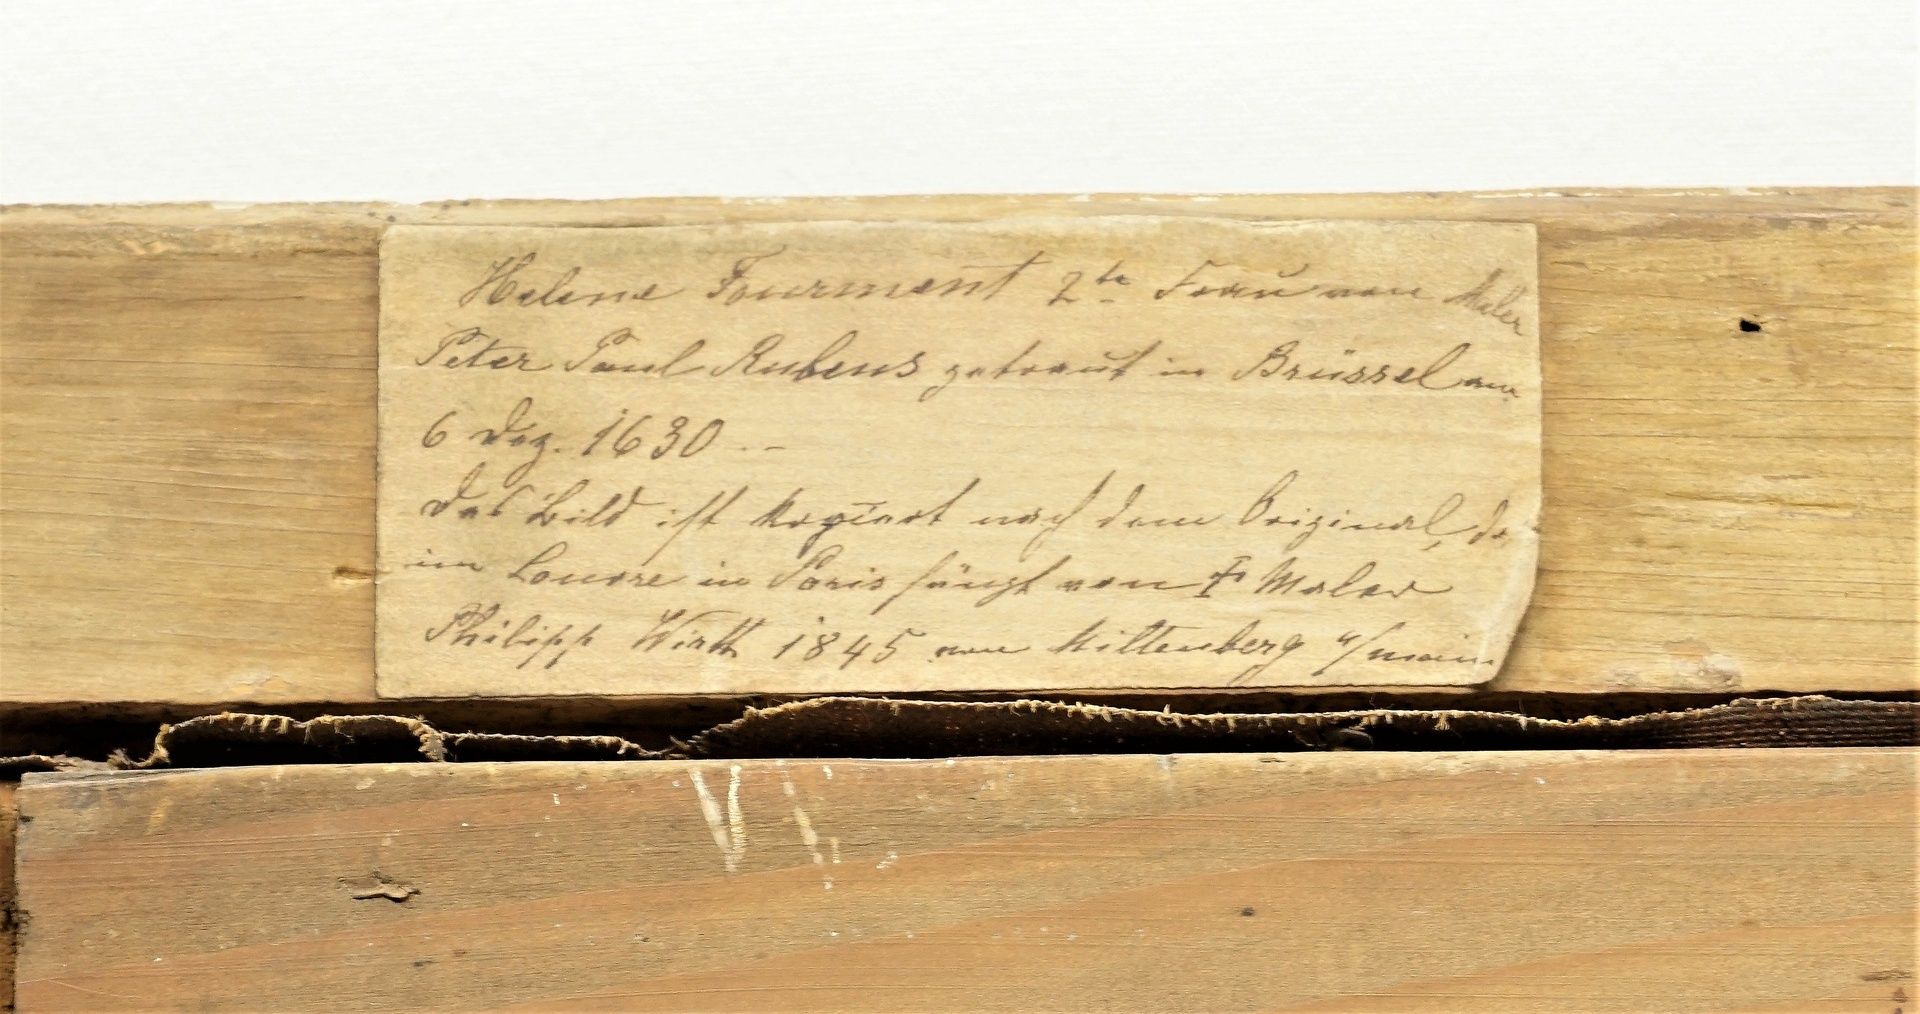 Helene Fourment 2te Frau von Maler
Peter Paul Rubens getraut in Brüssel am
6 Dez. 1630 --
Das Bild ist kopiert nach dem Original, da
im Louvre in Paris hängt von † Maler
Philipp Wirth 1845 von Miltenberg a/main